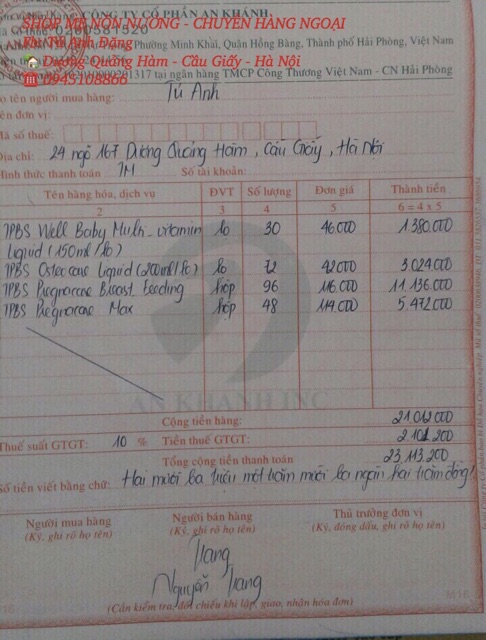 CÔNG TY CỔ PHẦN AN KHÁNH
SHOP MẸ NÓN NƯƠNG - CHUYÊN HÀNG NGOẠI
0200581520
Phường Minh Khai, Quận Hồng Bàng, Thành phố Hải Phòng, Việt Nam
Dương Quảng Hàm - Cầu Giấy - Hà Nội
tại ngân hàng TMCP Công Thương Việt Nam - CN Hải Phòng
0945108866
ọ tên người mua hàng: Tú Anh
ên đơn vị:
ã số thuế:
ịa chỉ: 24 ngõ 167 Dương Quảng Hàm, Cầu Giấy, Hà Nội
ình thức thanh toán TM Số tài khoản:
Tên hàng hóa, dịch vụ ĐVT Số lượng Đơn giá Thành tiền
2 3 4 5 6 = 4 x 5
JPBS Well Baby Multi-vitamin lọ 30 46000 1.380.000
Liquid (150ml/lọ)
JPBS Osteocare Liquid (200ml/lọ) lọ 72 42000 3.024.000
JPBS Pregnacare Breast Feeding hộp 96 116000 11.136.000
JPBS Pregnacare Max hộp 48 114.000 5.472.000
AN KHANH INC
Cộng tiền hàng: 21.012.000
Thuế suất GTGT: 10 % Tiền thuế GTGT: 2.101.200
Tổng cộng tiền thanh toán 23.113.200
Số tiền viết bằng chữ: Hai mươi ba triệu một trăm mười ba ngàn hai trăm đồng!
Người mua hàng Người bán hàng Thủ trưởng đơn vị
(Ký, ghi rõ họ tên) (Ký, ghi rõ họ tên) (Ký, đóng dấu, ghi rõ họ tên)
Trang
Nguyễn Trang
(Cần kiểm tra, đối chiếu khi lập, giao, nhận hóa đơn)